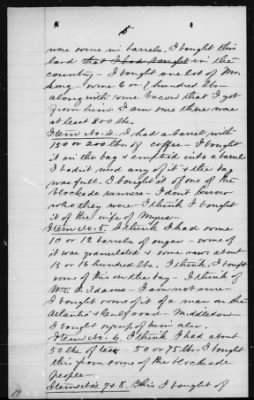 5
were some in barrels. I bought this
lard that I had bought in the
country - I bought one lot of Mr
Long - some 6 or 7 hundred lbs -
along with some bacon that I got
from him. I am sure there was
at least 800 lbs.
Item No. 4. I had a barrel with
150 or 200 lbs of coffee - I bought
it in the bag & emptied into a barrel
I hadn't used any of it & the bag
was full. I bought it of one of the
blockade runners - I don't know
who they were - I think I bought
it of the wife of
Item No. 5. I think I had some
10 or 12 barrels of sugar - some of
it was granulated & some raw about
15 or 16 hundred lbs. I think I bought
some of this on the bay - I think of
Wm. Adams - I am not sure -
I bought some of it of a man on the
Atlantic & Gulf road - Middleton
I bought syrup of him also.
Item No. 6. I think I had about
50 lbs of tea - 50 or 75 lbs I bought
this from some of the blockade
people -
Items No. 7 & 8. This I bought of